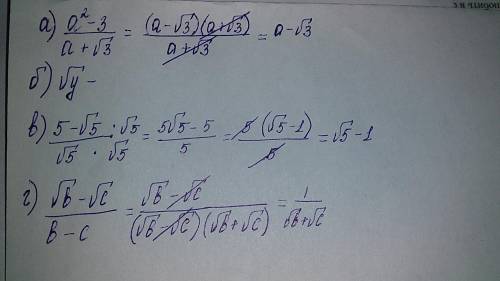 а) (a²-3)/(a+√3) = ((a-√3)(a+√3))/(a+√3) = a-√3
б) √y -
в) (5-√5 · √5)/(√5 · √5) = (5√5-5)/5 = (5(√5-1))/5 = √5-1
г) (√b-√c)/(b-c) = (√b-√c)/((√b-√c)(√b+√c)) = 1/(√b+√c)